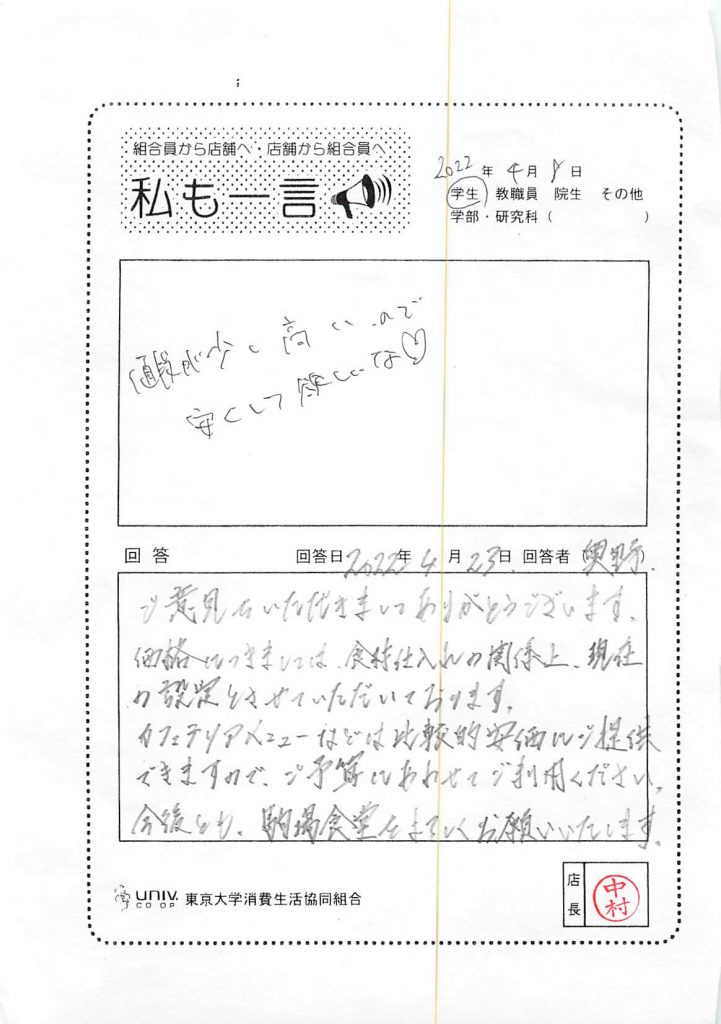 組合員から店舗へ・店舗から組合員へ
私も一言
2022年4月8日
学生 教職員 院生 その他
学部・研究科( )
値段が少し高いので
安くして欲しいな♡
回答 回答日2022年4月23日 回答者(奥野)
ご意見をいただきましてありがとうございます。
価格につきましては、食材仕入れの関係上、現在
の設定とさせていただいております。
カフェテリアメニューなどは比較的安価にご提供
できますので、ご予算にあわせてご利用ください。
今後とも、駒場食堂をよろしくお願いいたします。
UNIV. CO-OP 東京大学消費生活協同組合
店長
中村